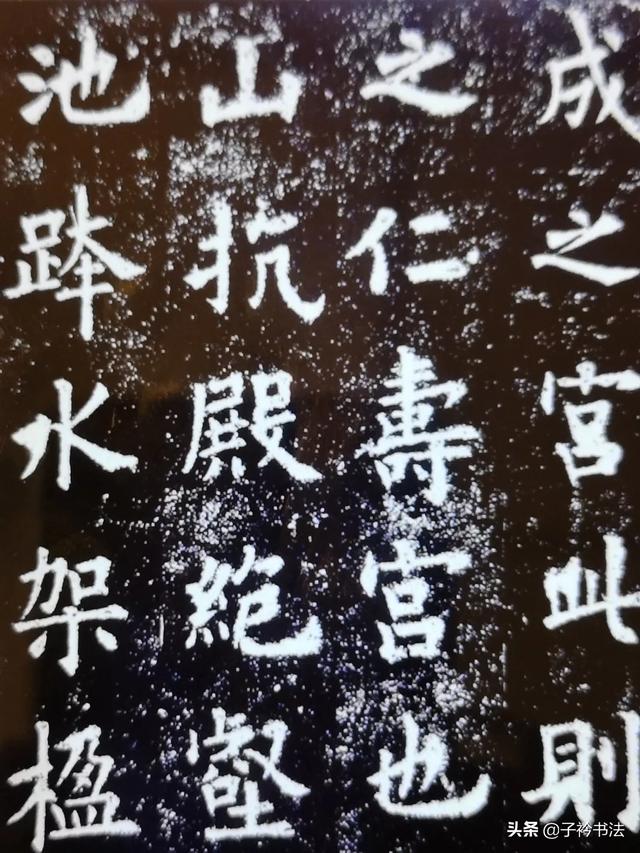 成之宮此則
之仁壽宮也
山抗殿絕壑
池跨水架楹
头条 @子衿书法